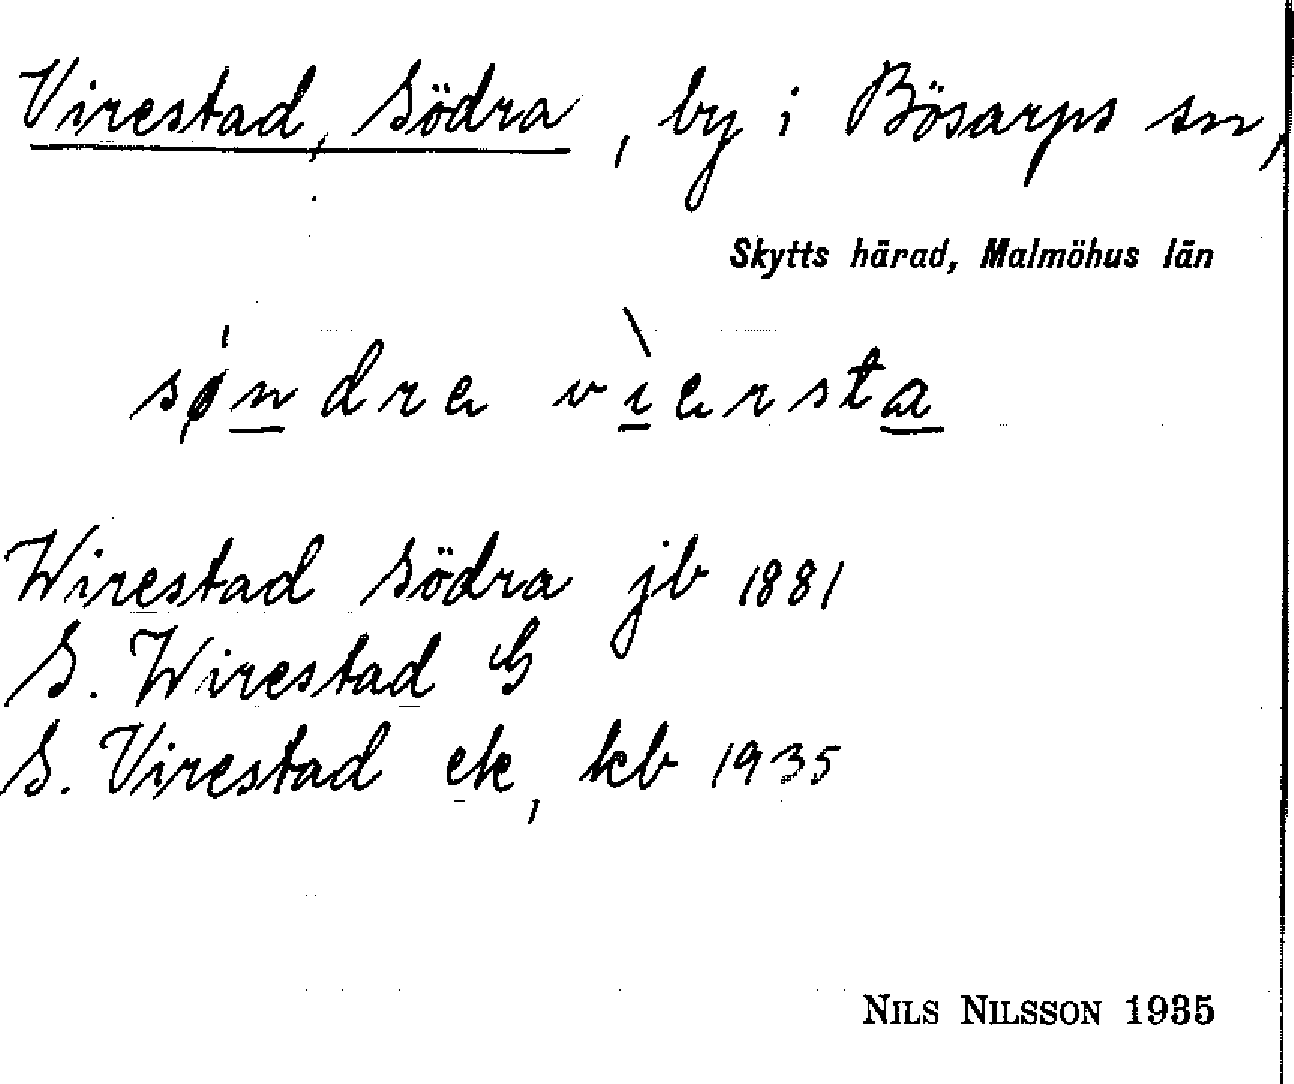 Virestad, Södra, by i Bösarps sn,
Skytts härad, Malmöhus län
søndre viersta
Wirestad Södra jb 1881
S. Wirestad G
S. Virestad ek, kb 1935
NILS NILSSON 1935